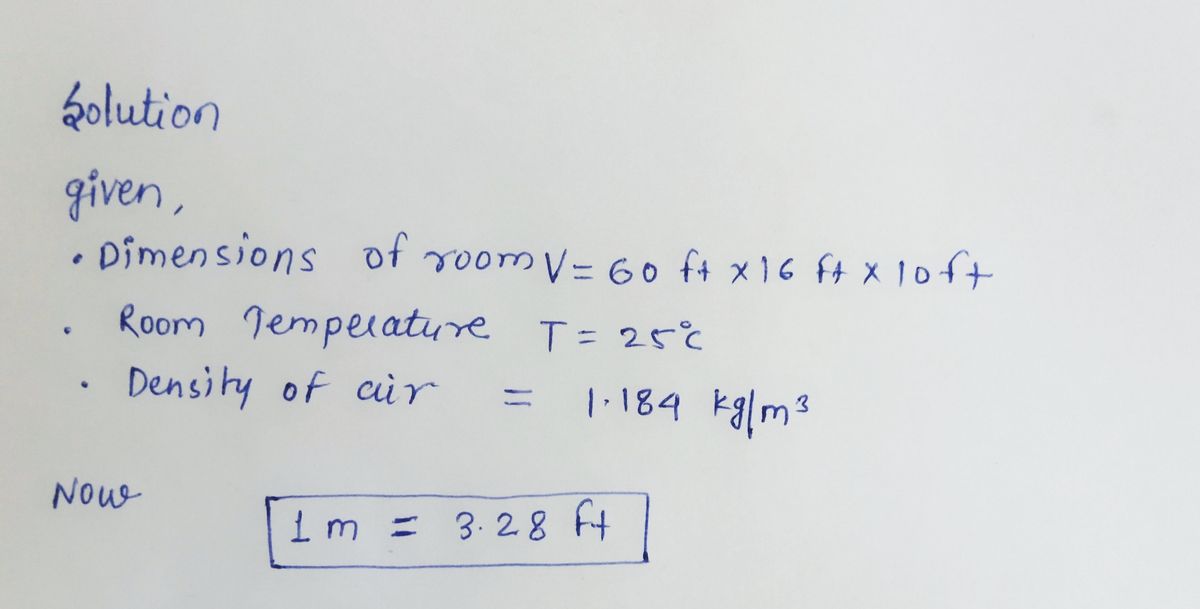 Solution
given,
• Dimensions of room V = 60 ft x 16 ft x 10 ft
• Room Temperature T = 25°c
• Density of air = 1.184 kg/m³
Now
1 m = 3.28 ft